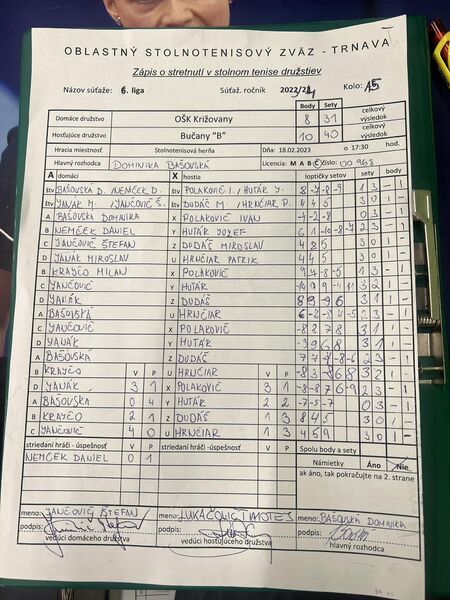 OBLASTNÝ STOLNOTENISOVÝ ZVÄZ - TRNAVA
Zápis o stretnutí v stolnom tenise družstiev
Názov súťaže: 6. liga Súťaž. ročník Kolo: 15
Body Sety celkový výsledok
Domáce družstvo OŠK Križovany 8 31
Hosťujúce družstvo Bučany "B" 10 40 celkový výsledok
Hracia miestnosť Stolnotenisová herňa Dňa: 18.02.2023 o 17:30 hod.
Hlavný rozhodca DOMINIKA BAŠOVSKÁ Licencia: M A B C číslo:
A domáci X hostia loptičky setov sety body
štv BAŠOVSKÁ D. /NEMČEK D. štv POLAKOVIČ I. / HUTÁR Y. 8 -7 -8 -9 1 3 - 1
štv JANÁK M. / JANČOVIČ Š. štv DUDÁŠ M. / HRNČIAR P. 4 4 5 3 0 1 -
A BAŠOVSKÁ DOMINIKA X POLAKOVIČ IVAN -4 -2 -8 0 3 - 1
B NEMČEK DANIEL Y HUTÁR JOZEF 2 3 - 1
C JANČOVIČ ŠTEFAN Z DUDÁŠ MIROSLAV 4 8 5 3 0 1 -
D JANÁK MIROSLAV U HRNČIAR PATRIK 4 4 5 3 0 1 -
B KRAJČO MILAN X POLAKOVIČ 1 3 - 1
C JANČOVIČ Y HUTÁR 3 2 1 -
D JANÁK Z DUDÁŠ 3 1 1 -
A BAŠOVSKÁ U HRNČIAR 2 3 - 1
C JANČOVIČ X POLAKOVIČ -8 8 2 7 8 3 1 1 -
D JANÁK Y HUTÁR -3 9 6 8 3 1 1 -
A BAŠOVSKÁ Z DUDÁŠ 7 7 -4 -8 -6 2 3 - 1
B KRAJČO V P U HRNČIAR V P 3 2 1 -
D JANÁK 3 1 X POLAKOVIČ 3 1 2 3 - 1
A BAŠOVSKÁ 0 4 Y HUTÁR 2 2 -7 -5 -7 0 3 - 1
B KRAJČO 2 1 Z DUDÁŠ 1 3 8 4 5 3 0 1 -
C JANČOVIČ 4 0 U HRNČIAR 1 3 4 5 9 3 0 1
striedaní hráči - úspešnosť V P striedaní hráči - úspešnosť V P Spolu body a sety
NEMČEK DANIEL 0 1
Námietky Áno Nie
ak áno, tak pokračujte na 2. strane
meno: JANČOVIČ ŠTEFAN meno: LUKAČOVIČ TIMOTEJ meno: BAŠOVSKÁ DOMINIKA
podpis: podpis: podpis:
vedúci domáceho družstva vedúci hosťujúceho družstva hlavný rozhodca